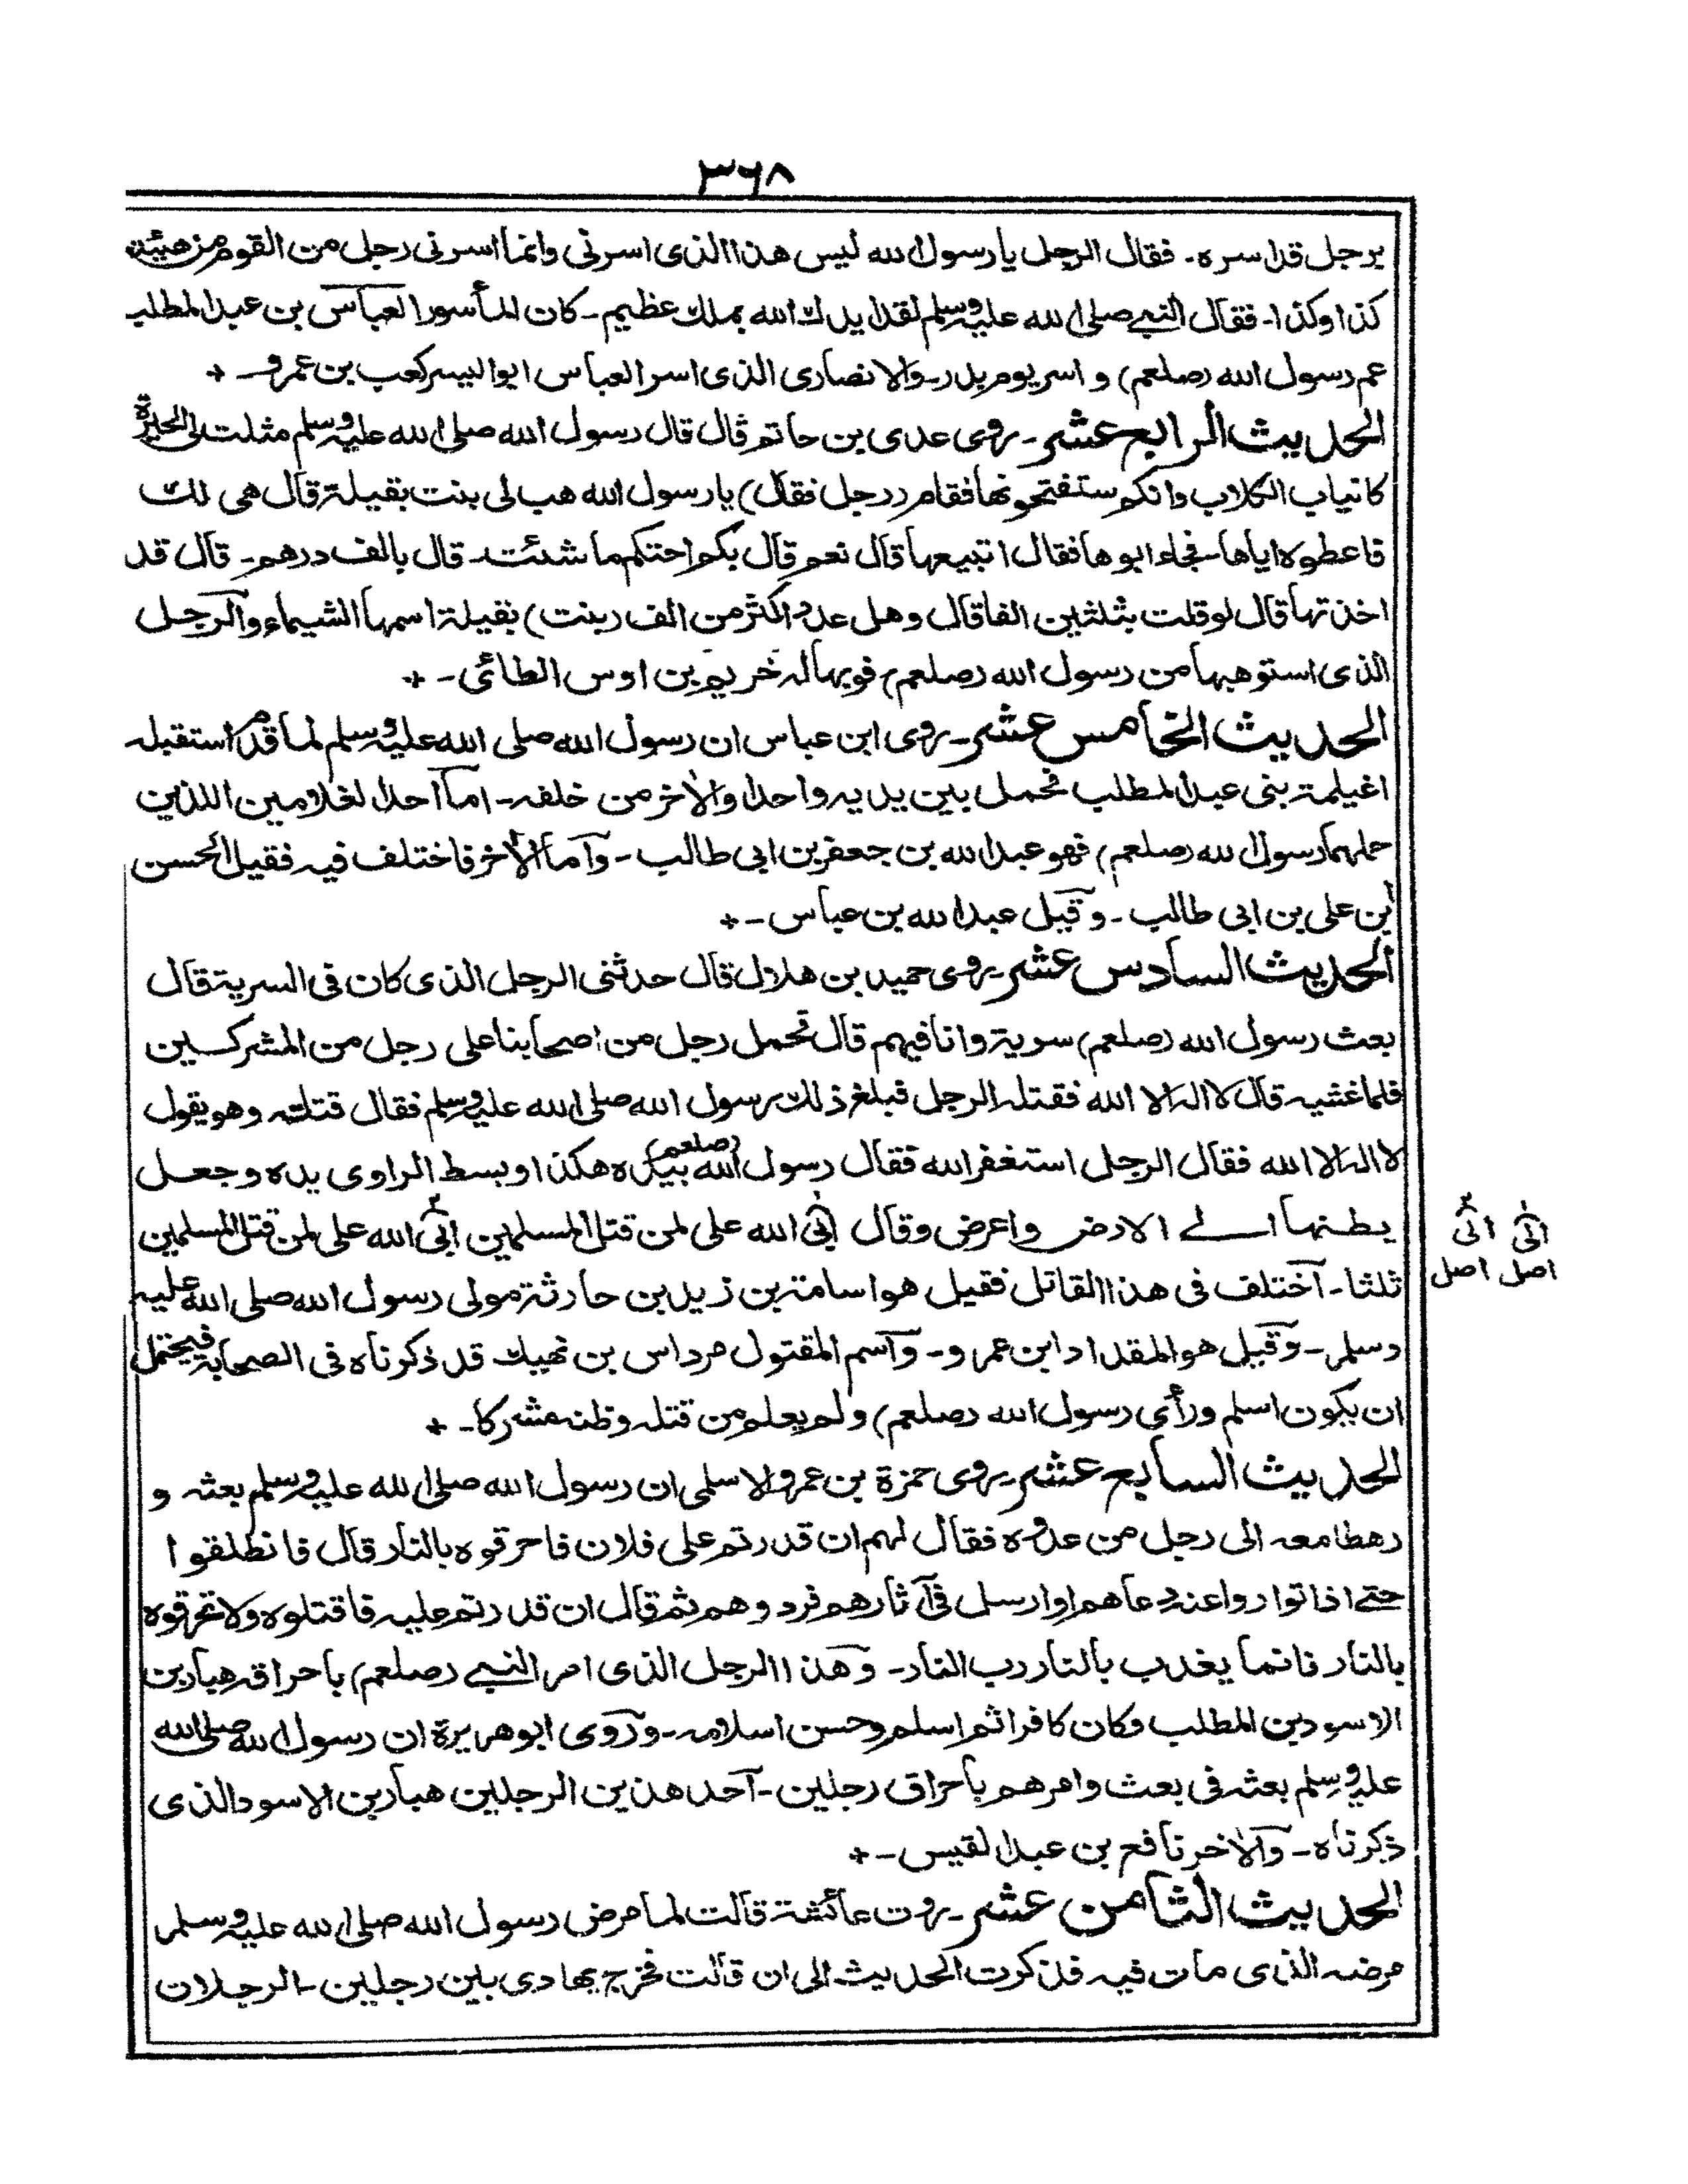 ٣٦٨
برجل قد اسره ـ فقال الرجل يا رسول الله ليس هذا الذى اسرنى وانما اسرنى رجل من القوم من هيئته
كذا وكذا ـ فقال النبى صلى الله عليه وسلم لقد ايدك الله بملك عظيم ـ كان المأسور العباس بن عبد المطلب
عم رسول الله (صلعم) و اسر يوم بدر ـ والانصارى الذى اسر العباس ابو اليسر كعب بن عمرو ـ +
الحديث الرابع عشر ـ روى عدى بن حاتم قال قال رسول الله صلى الله عليه وسلم مثلت لى الحيرة
كانياب الكلاب وانكم ستفتحونها فقام (رجل فقال) يا رسول الله هب لى بنت بقيلة قال هى لك
فاعطوه اياها ـ فجاء ابوها فقال اتبيعها قال نعم قال بكم احتكم ما شئت ـ قال بالف درهم ـ قال قد
اخذتها قال لو قلت بثلثين الفا قال وهل عدد اكثر من الف (بنت) بقيلة اسمها الشيماء والرجل
الذى استوهبها من رسول الله (صلعم) فوبها له خريم بن اوس الطائى ـ +
الحديث الخامس عشر ـ روى ابن عباس ان رسول الله صلى الله عليه وسلم لما قدم استقبله
اغيلمة بنى عبد المطلب فحمل بين يديه واحدا والاخر من خلفه ـ اما احد الغلامين اللذين
حملهما رسول الله (صلعم) فهو عبد الله بن جعفر بن ابى طالب ـ واما الأخر فاختلف فيه فقيل الحسن
ابن على بن ابى طالب ـ وقيل عبد الله بن عباس ـ +
الحديث السادس عشر ـ روى حميد بن هلال قال حدثنى الرجل الذى كان فى السرية قال
بعث رسول الله (صلعم) سرية وانا فيهم قال تحمل رجل من اصحابنا على رجل من المشركين
فلما غشيه قال لا اله الا الله فقتله الرجل فبلغ ذلك رسول الله صلى الله عليه وسلم فقال قتلته وهو يقول
لا اله الا الله فقال الرجل استغفر الله فقال رسول الله (صلعم) بيده هكذا وبسط الراوى يده وجعل
بطنها الى الارض واعرض وقال ابى الله على لمن قتل المسلمين ابى الله على لمن قتل المسلمين
انى انى
اصل اصل
ثلثا ـ اختلف فى هذا القاتل فقيل هو اسامة بن زيد بن حارثة مولى رسول الله صلى الله عليه
وسلم ـ وقيل هو المقداد ابن عمرو ـ واسم المقتول مرداس بن نهيك قد ذكرناه فى الصحابة فيحتمل
ان يكون اسلم ورأى رسول الله (صلعم) ولم يعلم من قتله وظنه مشركا ـ +
الحديث السابع عشر ـ روى حمزة بن عمرو الاسلمى ان رسول الله صلى الله عليه وسلم بعثه و
رهطا معه الى رجل من عدوه فقال لهم ان قدرتم على فلان فاحرقوه بالنار قال فانطلقوا
حتى اذا تواروا عنه دعاهم او ارسل فى آثارهم فردوهم ثم قال ان قدرتم عليه فاقتلوه ولا تحرقوه
بالنار فانما يعذب بالنار رب النار ـ وهذا الرجل الذى امر النبى (صلعم) باحراقه هبار بن
الاسود بن المطلب وكان كافرا ثم اسلم وحسن اسلامه ـ وروى ابو هريرة ان رسول الله صلى الله
عليه وسلم بعثه فى بعث وامرهم باحراق رجلين ـ احد هذين الرجلين هبار بن الاسود الذى
ذكرناه ـ والاخر نافع بن عبد القيس ـ +
الحديث الثامن عشر ـ روت عائشة قالت لما مرض رسول الله صلى الله عليه وسلم
مرضه الذى مات فيه فذكرت الحديث الى ان قالت فخرج يهادى بين رجلين ـ الرجلان